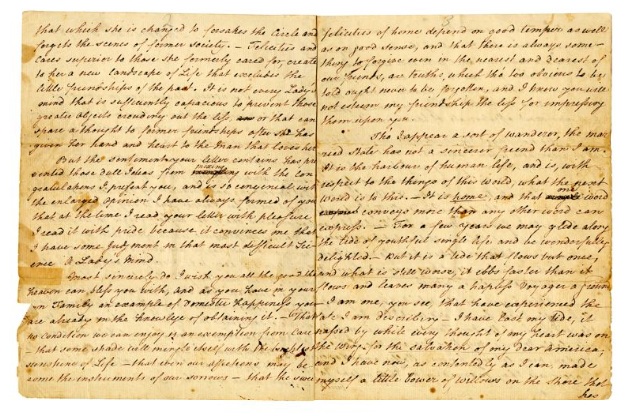 that which she is changed to forsakes the Circle and
forgets the scenes of former society. – Felicities and
cares superior to those she formerly cared for, create
to her a new landscape of Life that excludes the
little friendships of the past. It is not every Lady's
mind that is sufficiently capacious to prevent those
greater objects crowding out the less, or that can
spare a thought to former friendships after she has
given her hand and heart to the Man that loves her
But the sentiment your letter contains has pre
vented those dull Ideas from mixing with the con
gratulations I present you, and is so congenial with
the enlarged opinion I have always formed of you
that at the time I read your letter with pleasure
I read it with pride because it convinces me that
I have some judgment in that most difficult Sci
ence A Lady's Mind.
Most sincerely do I wish you all the good that
Heaven can bless you with, and as you have in your
own Family an example of domestic happiness you
are already in the knowlege of obtaining it. – That
no condition we can enjoy is an exemption from Care
– that some shade will mingle itself with the brightest
sunshine of Life – that even our affections may be
come the instruments of our sorrows – that the sweet
felicities of home depend on good temper as well
as on good sense, and that there is always some-
thing to forgive even in the nearest and dearest of
our friends, are truths, which tho' too obvious to be
told ought never to be forgotten, and I know you will
not esteem my friendship the less for impressing
them upon you.
Tho I appear a sort of wanderer, the mar
ried State has not a sincerer friend than I am.
It is the harbour of human life, and is, with
respect to the things of this world, what the next
world is to this. – It is home; and that one word
conveys more than any other word can
express. – For a few years we may glide along
the tide of youthful single life and be wonderfully
delighted – but it is a tide that flows but once,
and what is still worse, it ebbs faster than it
flows and leaves many a hapless Voyager a ground
– I am one, you see, that have experienced the
fate I am describing – I have lost my tide, it
passed by while every thought of my heart was on
the wing for the salvation of my dear America,
and I have now, as contentedly as I can, made
myself a little bower of willows on the shore that
has